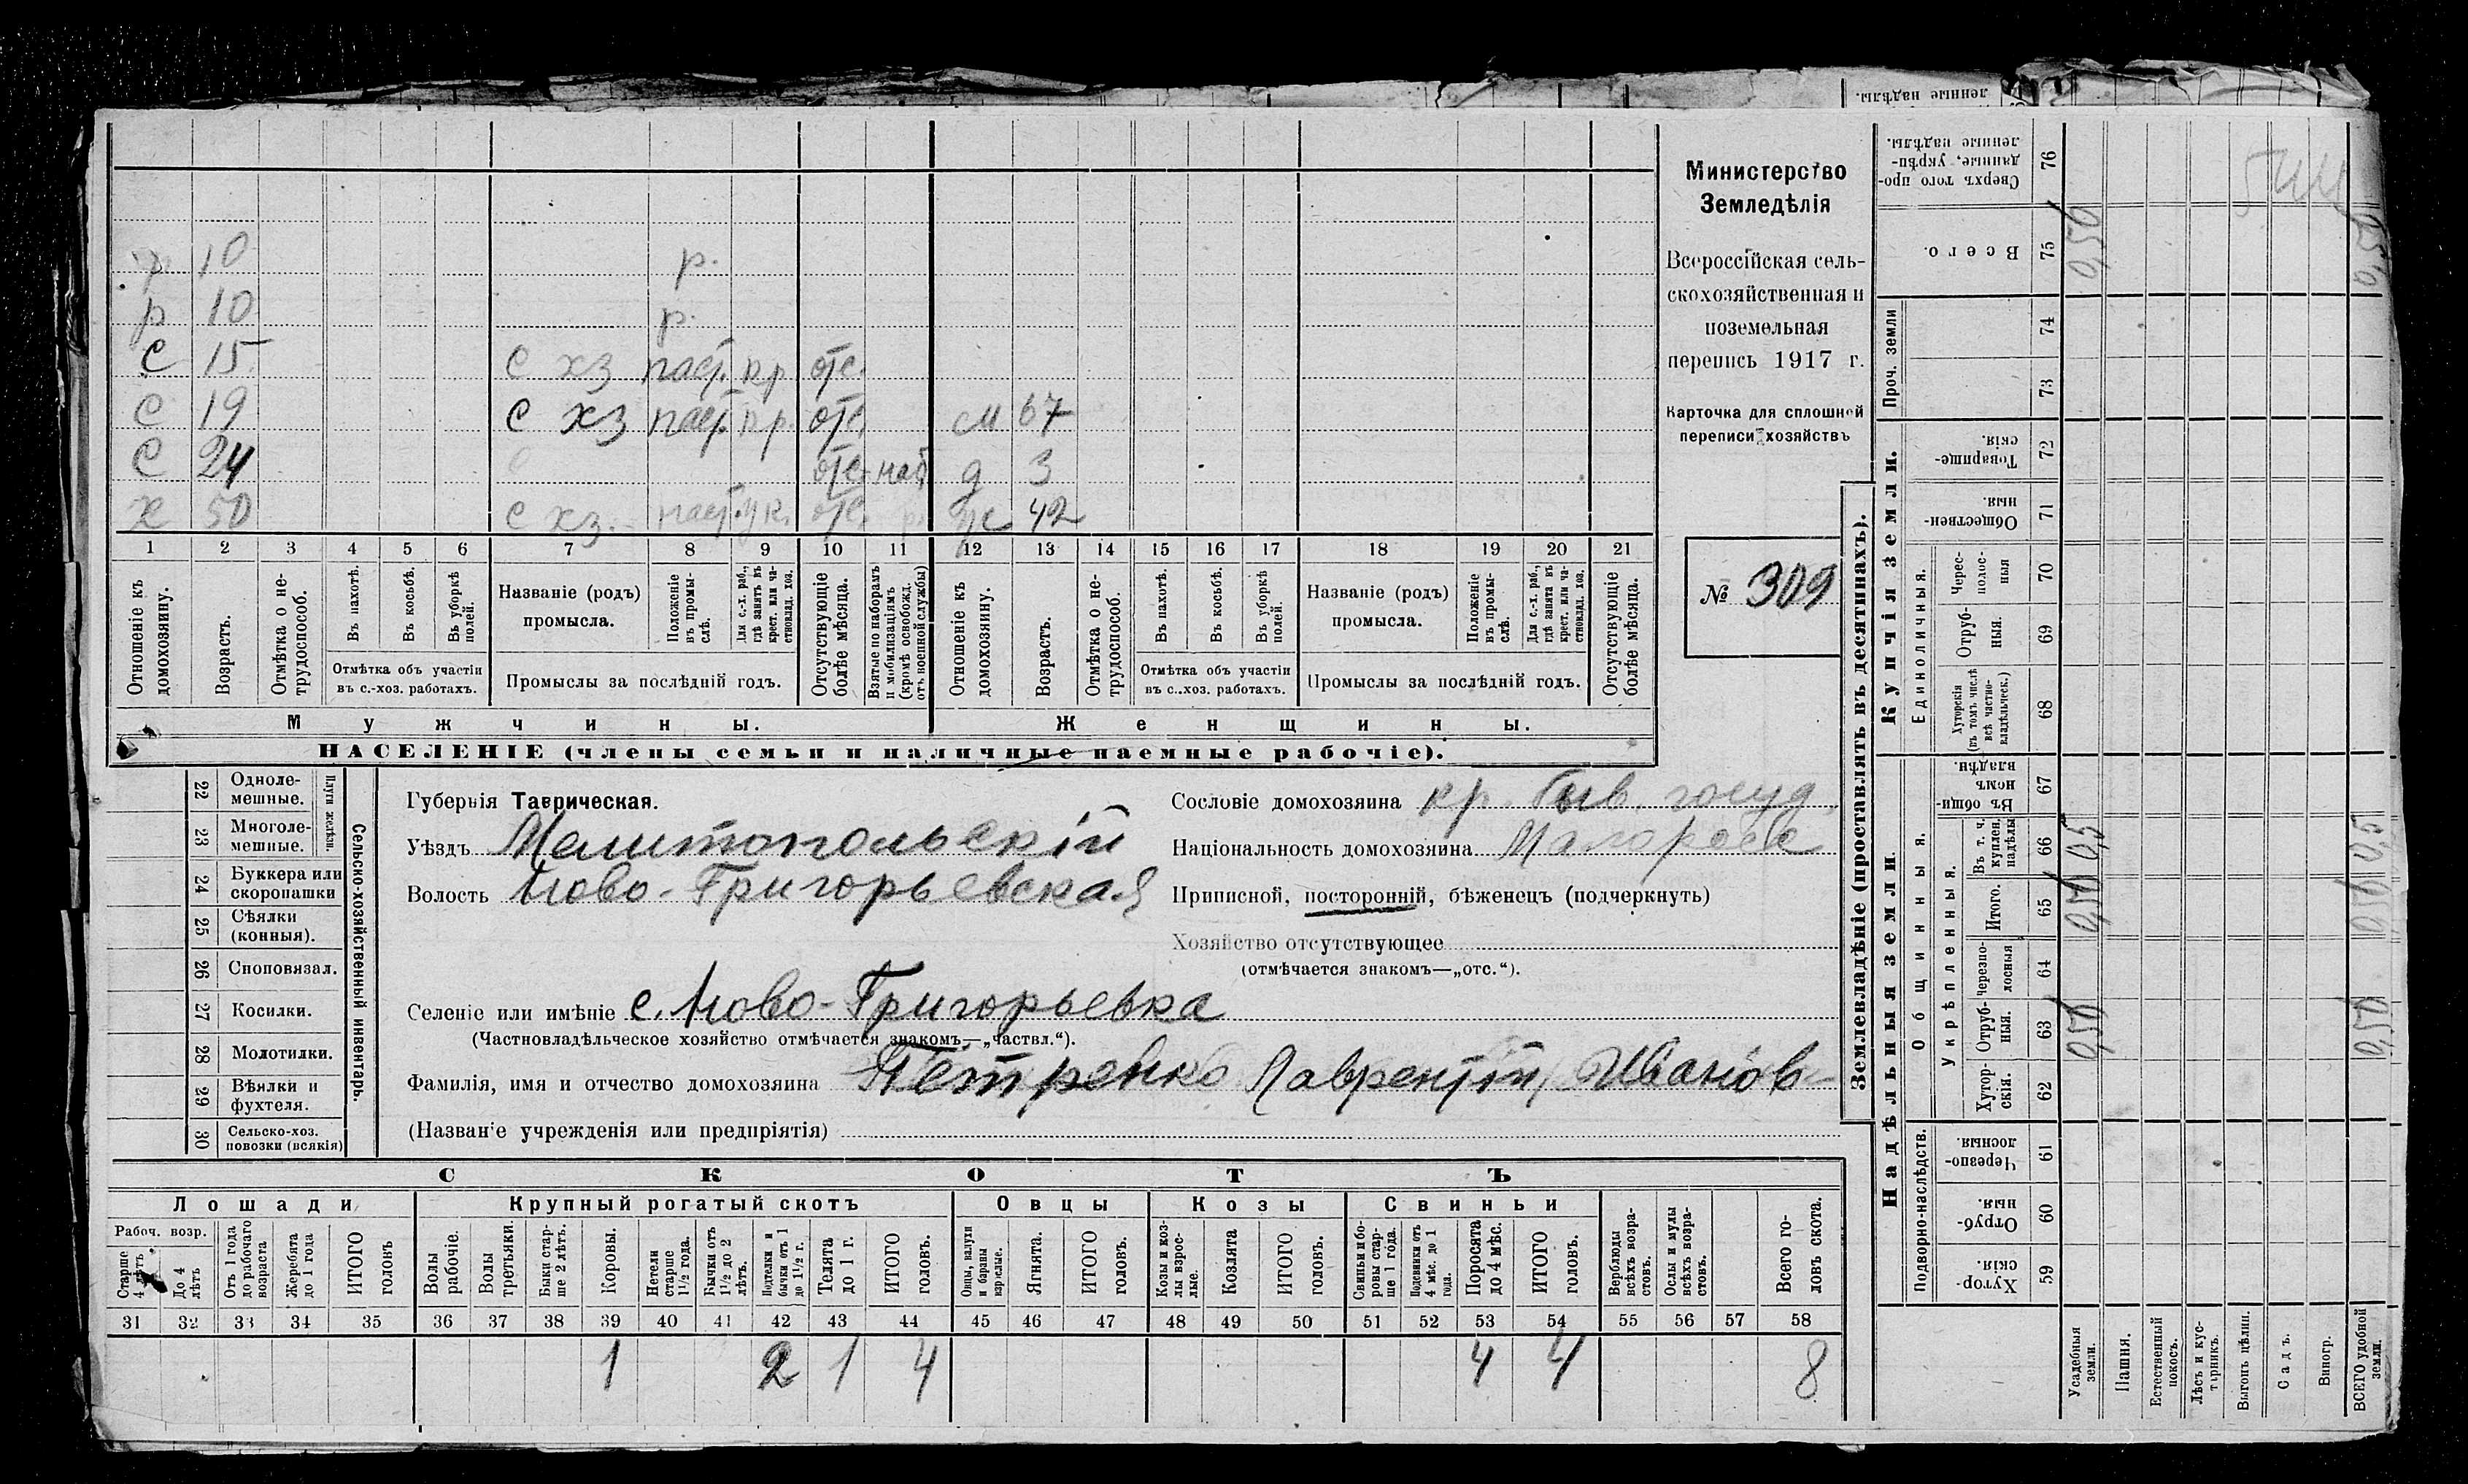 р. 10 р.
р 10 р.
с 15 с хз паст. кр отс.
с 19 с хз паст. кр. отс. м 67
с 24 отс. моб д 3
х 50 с хз. паст. отс. ж 42
1 2 3 4 5 6 7 8 9 10 11 12 13 14 15 16 17 18 19 20 21
Отношеніе къ домохозяину.
Возрастъ.
Отмѣтка о не-трудоспособ.
Въ пахотѣ.
Въ косьбѣ.
Въ уборкѣ полей.
Отмѣтка объ участіи
въ с.-хоз. работахъ.
Названіе (родъ)
промысла.
Положеніе въ промы-слѣ.
Для с.-х. раб., гдѣ занятъ въ крест. или ча-стновлад. хоз.
Промыслы за послѣдній годъ.
Отсутствующіе болѣе мѣсяца.
Взятые по наборамъ и мобилизаціямъ (кромѣ освобожд. отъ военной службы)
Отношеніе къ домохозяину.
Возрастъ.
Отмѣтка о не-трудоспособ.
Въ пахотѣ.
Въ косьбѣ.
Въ уборкѣ полей.
Отмѣтка объ участіи
въ с.-хоз. работахъ.
Названіе (родъ)
промысла.
Положеніе въ промы-слѣ.
Для с.-х. раб., гдѣ занята въ крест. или ча-стновлад. хоз.
Промыслы за послѣдній годъ.
Отсутствующіе болѣе мѣсяца.
Мужчины. Женщины.
НАСЕЛЕНІЕ (члены семьи и наличные наемные рабочіе).
Министерство
Земледѣлія
Всероссійская сель-
скохозяйственная и
поземельная
перепись 1917 г.
Карточка для сплошной
переписи хозяйствъ
№ 309
22 Одноле-
мешные.
23 Многоле-
мешные.
Плуги желѣзн.
24 Буккера или
скоропашки
25 Сѣялки
(конныя).
26 Сноповязал.
27 Косилки.
28 Молотилки.
29 Вѣялки и
фухтеля.
30 Сельско-хоз.
повозки (всякія)
Сельско-хозяйственный инвентарь.
Губернія Таврическая.
Уѣздъ Мелитопольскій
Волость Ново-Григорьевская
Сословіе домохозяина кр. быв. госуд.
Національность домохозяина Малоросс
Приписной, посторонній, бѣженецъ (подчеркнуть)
Хозяйство отсутствующее
(отмѣчается знакомъ—„отс.“).
Селеніе или имѣніе с. Ново-Григорьевка
(Частновладѣльческое хозяйство отмѣчается знакомъ—„частвл.“).
Фамилія, имя и отчество домохозяина Петренко Лаврентій Иванов
(Названіе учрежденія или предпріятія)
СКОТЪ
Лошади Крупный рогатый скотъ Овцы Козы Свиньи
Рабоч. возр.
Старше 4 лѣтъ
До 4 лѣтъ
Отъ 1 года до рабочаго возраста
Жеребята до 1 года
ИТОГО головъ
Волы рабочіе.
Волы третьяки.
Быки стар-ше 2 лѣтъ.
Коровы.
Нетели старше 1½ года.
Бычки отъ 1½ до 2 лѣтъ.
Подтелки и бычки отъ 1 до 1½ г.
Телята до 1 г.
ИТОГО головъ.
Овцы, валухи и бараны взрослые.
Ягнята.
ИТОГО головъ.
Козы и коз-лы взрос-лые.
Козлята
ИТОГО головъ.
Свиньи и бо-ровы стар-ше 1 года.
Подсвинки отъ 4 мѣс. до 1 года.
Поросята до 4 мѣс.
ИТОГО головъ.
Верблюды всѣхъ возра-стовъ.
Ослы и мулы всѣхъ возра-стовъ.
Всего го-ловъ скота.
31 32 33 34 35 36 37 38 39 40 41 42 43 44 45 46 47 48 49 50 51 52 53 54 55 56 57 58
1 2 1 4 4 4 8
Землевладѣніе (проставлять въ десятинахъ).
Купчія земли.
Надѣльныя земли.
Сверхъ того про-данные, укрѣп-ленные надѣлы. 76
Всего. 75 0,50
Проч. земли 74 73
Товарище-скія. 72
Обществен-ныя. 71
Единоличныя.
Черес-полос-ныя 70
Отруб-ныя. 69
Хуторскія (въ томъ числѣ всѣ частно-владѣльческ.) 68
Общинныя.
Въ общи-номъ владѣн. 67
Укрѣпленныя.
Въ т. ч. куплен. надѣлы 66 0,5 0,5
Итого. 65 0,50 0,50
Черезпо-лосныя 64
Отруб-ныя. 63 0,50 0,50
Хутор-скія. 62
Подворно-наслѣдств.
Черезпо-лосныя. 61
Отруб-ныя. 60
Хутор-скія. 59
Усадебныя земли.
Пашня.
Естественный покосъ.
Лѣсъ и кус-тарникъ.
Выгонъ цѣлин.
Садъ.
Виногр.
ВСЕГО удобной земли.
ленные надѣлы.